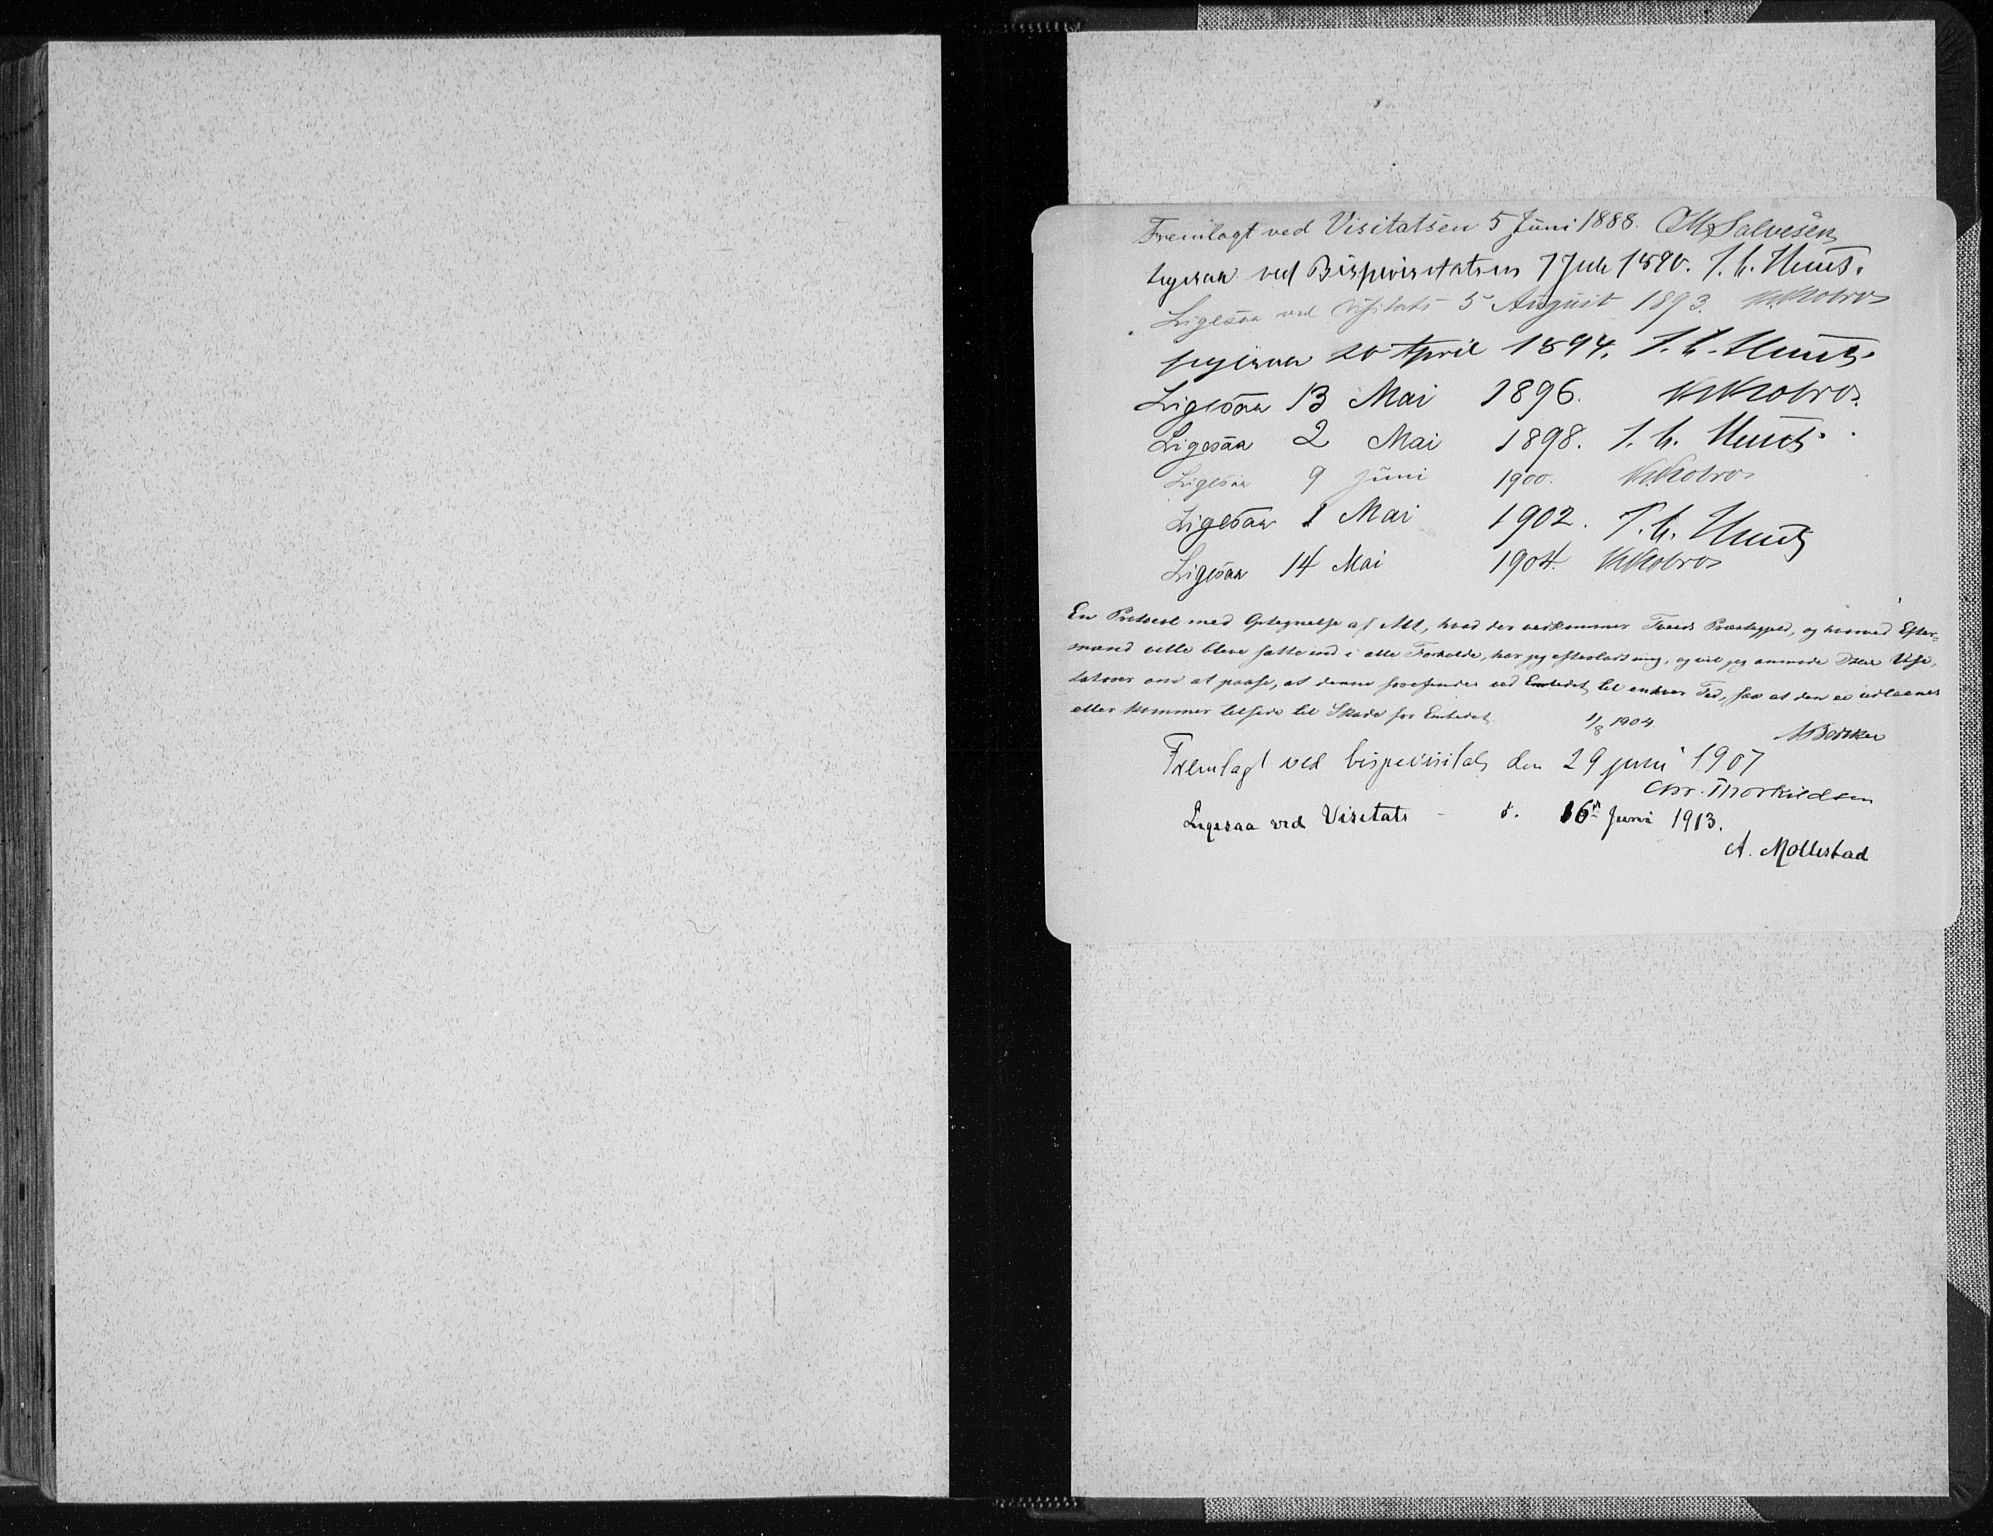 Fremlagt ved Visitatsen 5 Juni 1888. Salvesen
Ligesaa ved Bispevisitatsen 7 Juli 1890. J. C. Heuch.
Ligesaa ved Visitats 5 August 1893.
Ligesaa 20 April 1894. J. C. Heuch.
Ligesaa 13 Mai 1896.
Ligesaa 2 Mai 1898. J. C. Heuch.
Ligesaa 9 Juni 1900.
Ligesaa 1 Mai 1902. J. C. Heuch
Ligesaa 14 Mai 1904.
En Protocol med Optegnelse af Alt, hvad der vedkommer Tveids Præstegjeld, og hvorved Efter-
mænd ville blive satte ind i alle Forholde, har jeg efterladt mig, og vil jeg anmode Dhrr Visi-
tatorer om at paase, at denne forefindes ved Embedet til enhver Tid, saa at den ei udlaanes
eller kommer tilside til Skade for Embedet
1/8 1904.
Fremlagt ved bispevisitats den 29 juni 1907
Chr. Thorkildsen
Ligesaa ved Visitats - d. 16de Juni 1913.
A. Mollestad